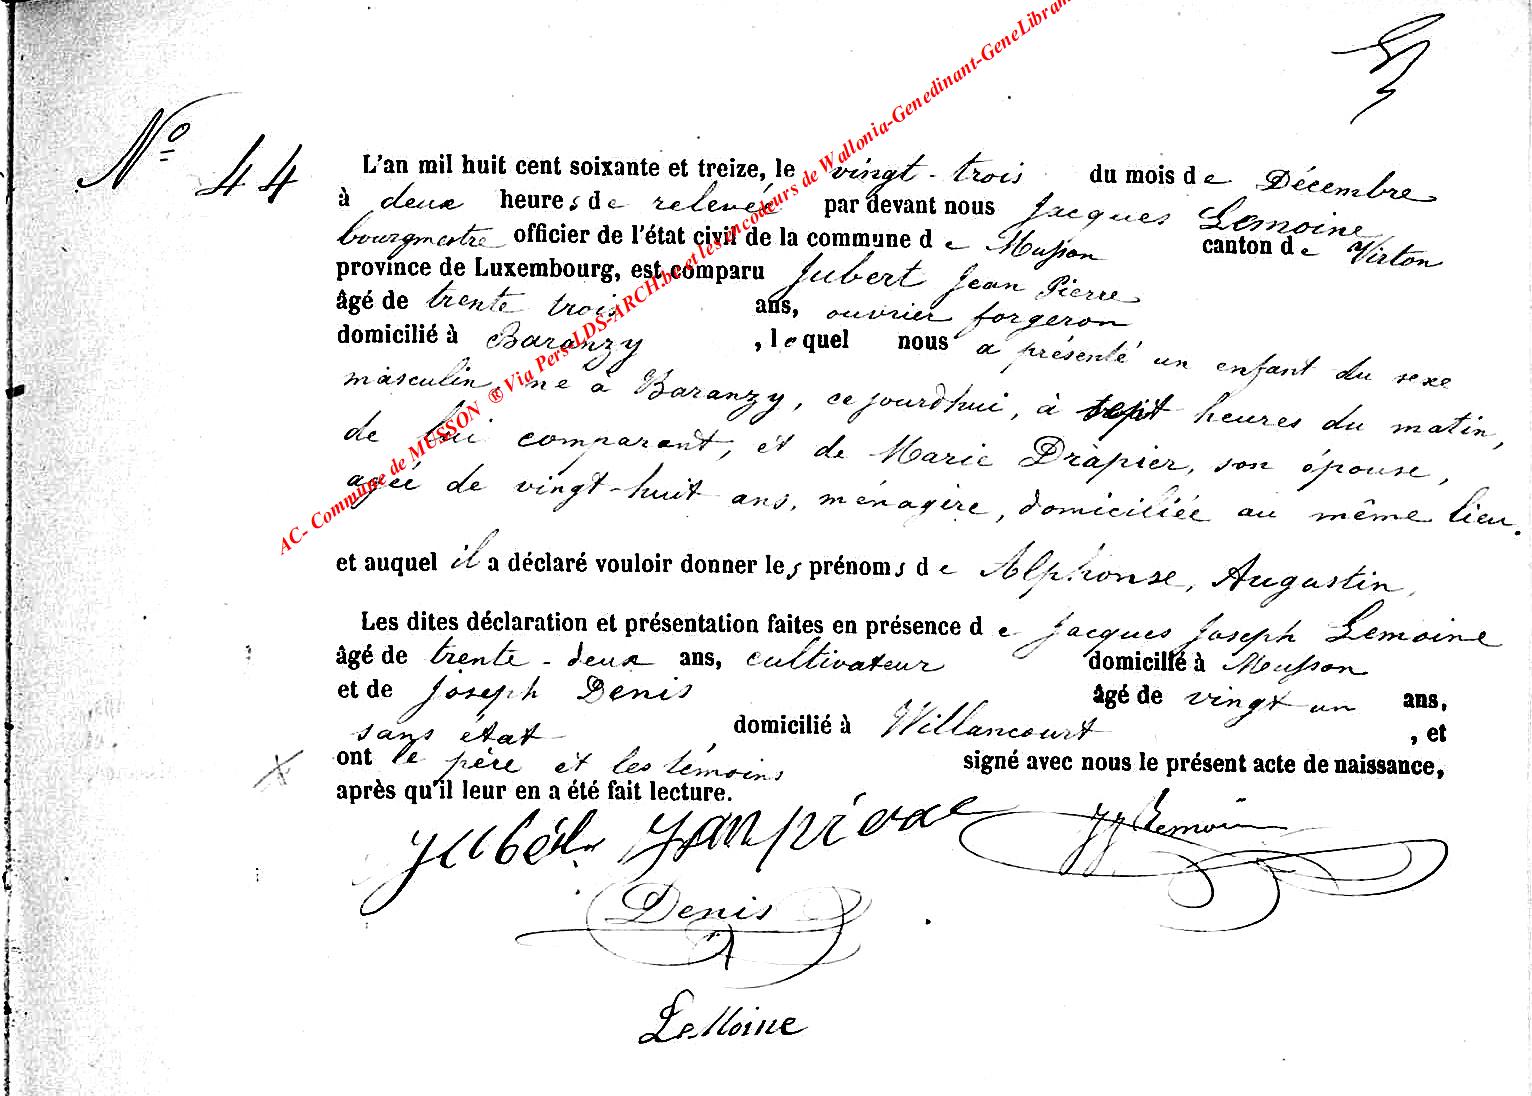 Nº 44
L'an mil huit cent soixante et treize, le vingt-trois du mois de Décembre
à deux heures de relevée par devant nous Jacques Lemoine
bourgmestre officier de l'état civil de la commune de Musson canton de Virton
province de Luxembourg, est comparu Jubert Jean Pierre
âgé de trente trois ans, ouvrier forgeron
domicilié à Baranzy, lequel nous a présenté un enfant du sexe
masculin, né à Baranzy, ce jourd'hui, à sept heures du matin,
de lui comparant, et de Marie Drapier, son épouse,
agée de vingt-huit ans, ménagère, domiciliée au même lieu.
et auquel il a déclaré vouloir donner les prénoms de Alphonse, Augustin,
Les dites déclaration et présentation faites en présence de Jacques Joseph Lemoine
âgé de trente-deux ans, cultivateur domicilié à Musson
et de Joseph Denis âgé de vingt un ans,
sans état domicilié à Willancourt, et
ont le père et les témoins signé avec nous le présent acte de naissance,
après qu'il leur en a été fait lecture.
JJ Lemoine
Denis
LeMoine
AC- Commune de MUSSON ® Via Pers-LDS-ARCH.be et les encodeurs de Wallonia-Genedinant-GeneLibran